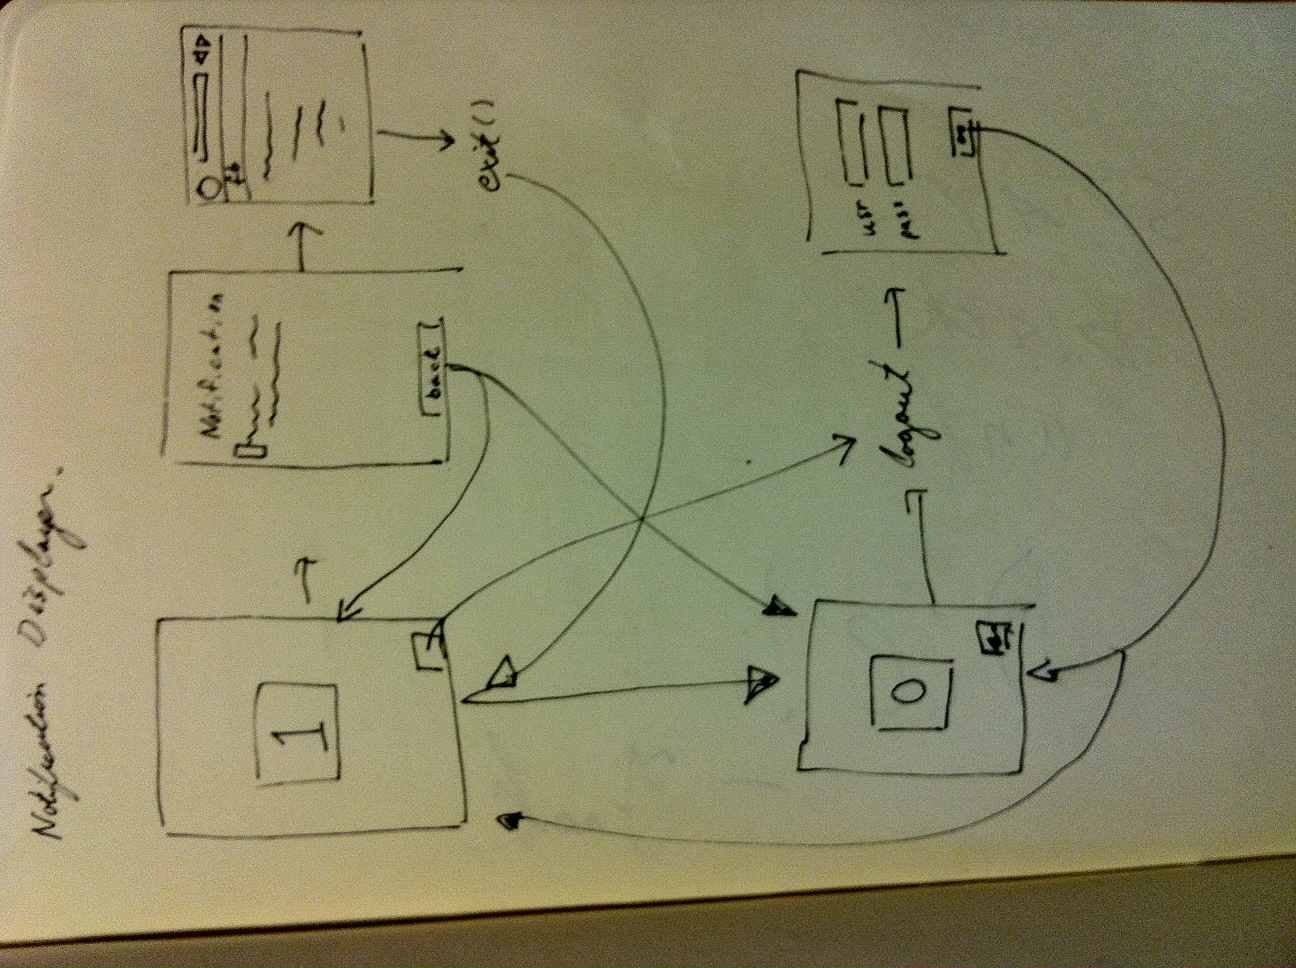 Notification Displayer.
1
Notification
fb
back
exit()
0
logout
usr
pass